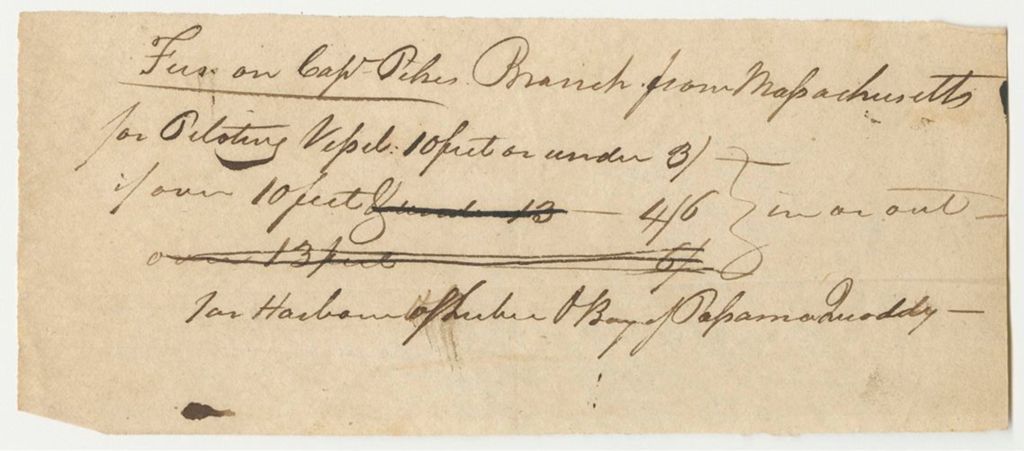 Fees on Capt Pikes Branch from Massachusetts
for Piloting Vessel: 10 feet or under 3/ —
if over 10 feet & under 13 — 4/6 } in or out —
over 13 feet 6/
for Harbour of Lubec & Bay of PassamaQuoddy —